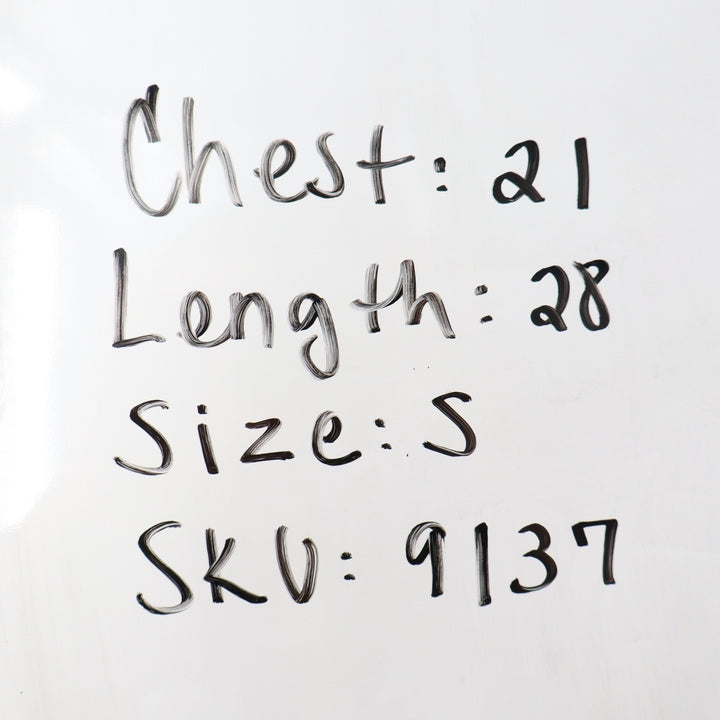 Chest: 21
Length: 28
Size: S
SKU: 9137